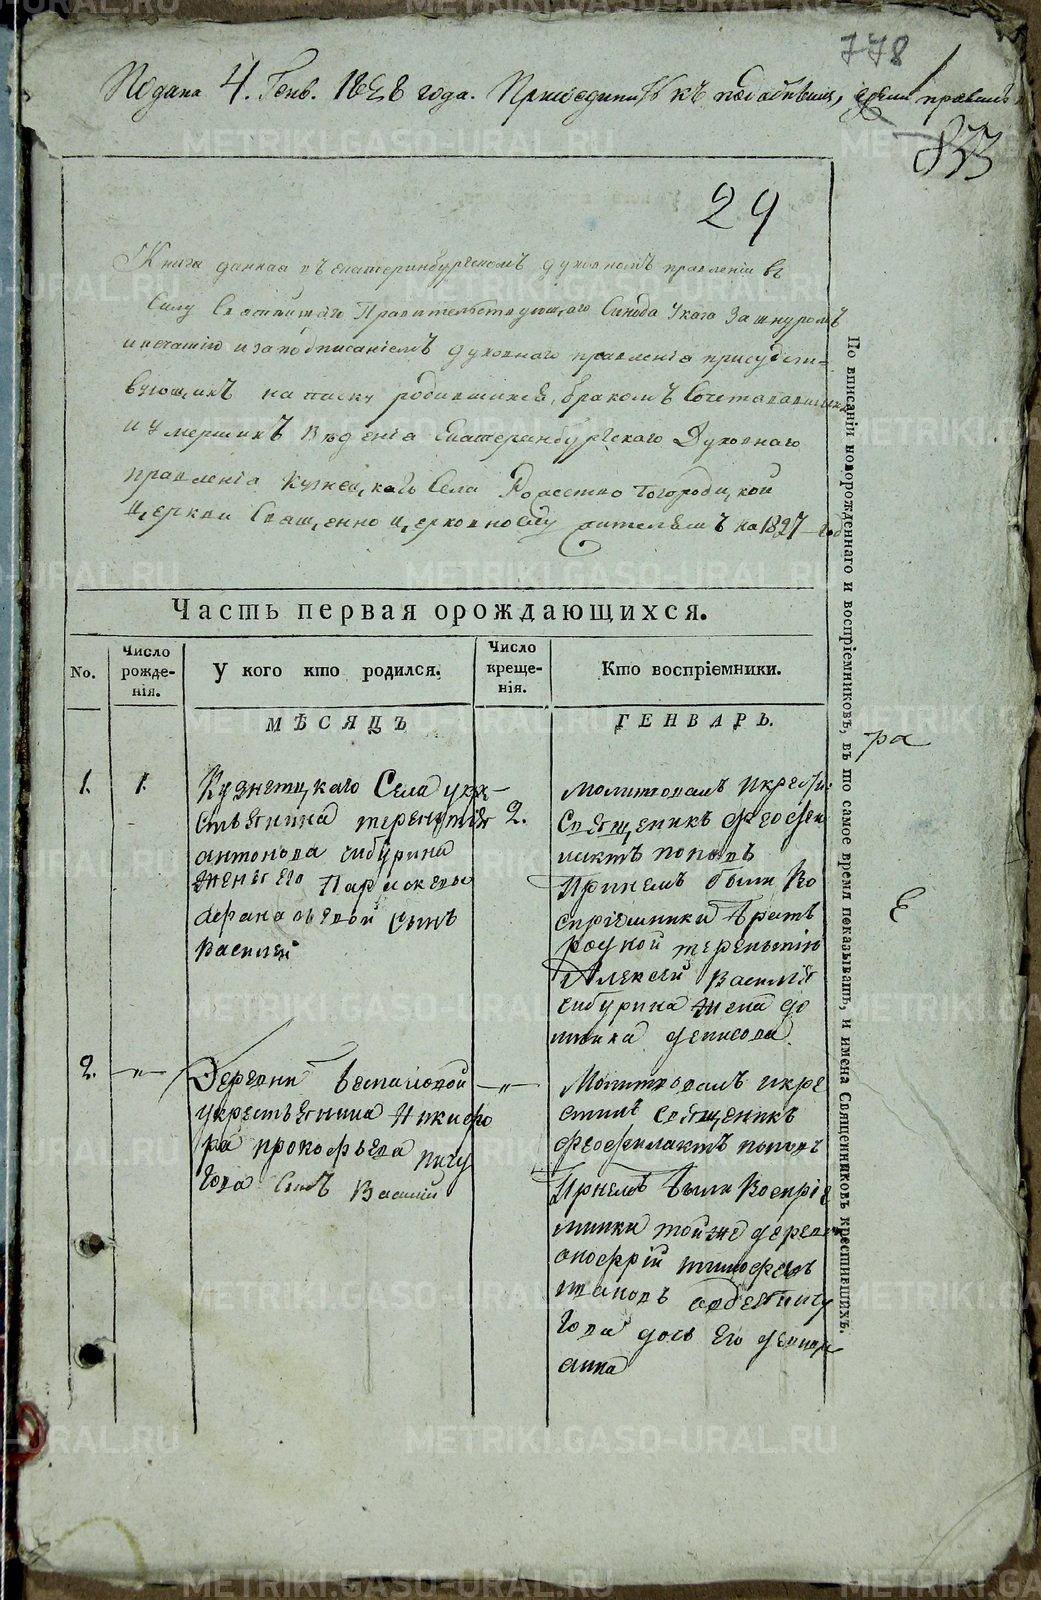 778
Подана 4. Генв. 1828 года. Присоединить къ подобнымъ,
833
29
Книга данная въ Екатеринбургскомъ духовномъ правленіи въ
Силу Святѣйшаго Правительствующаго Синода Указа За шнуромъ
и печатію и заподписаніемъ духовнаго правленія присудстг
вующихъ на писку родившихся, бракомъ Сочетавшихся
и умершихъ Вѣденія Екатеринбургскаго Духовнаго
правленія Кузнецкаго Села Рожество Богородицкой
Церкви Священно церковно служителямъ на 1827 год
Часть первая орождающихся.
No.
Число рожденія.
У кого кто родился.
Число крещенія.
Кто воспріемники.
МѢСЯЦЪ
ГЕНВАРЬ.
1.
1.
Кузнетцкаго Села укре
стьянина терентия
антонова чибурина
жены Его Параскевы
афанасьевой сынъ
василей
2.
Молитвовалъ икрести
Священикъ Феофи
лактъ поповъ
Принемъ были Во
спріемники братъ
родной терентию
Алексей василия
чибурина жена до
мника денисова
2.
—„—
Деревни
укрестьянина Никифо
ра прокофьева пичу
гова Сынъ Василий
—„—
Молитвовалъ икре
стилъ священикъ
Феофилактъ поповъ
Принемъ были Воспріе
мники тойже деревни
онофрій тимофеевъ
пичу
гова дочь Его
анна
По вписаніи новорожденнаго и воспріемниковъ, въ то самое время показывать, и имена Священниковъ крестившихъ.
ра
METRIKI.GASO-URAL.RU